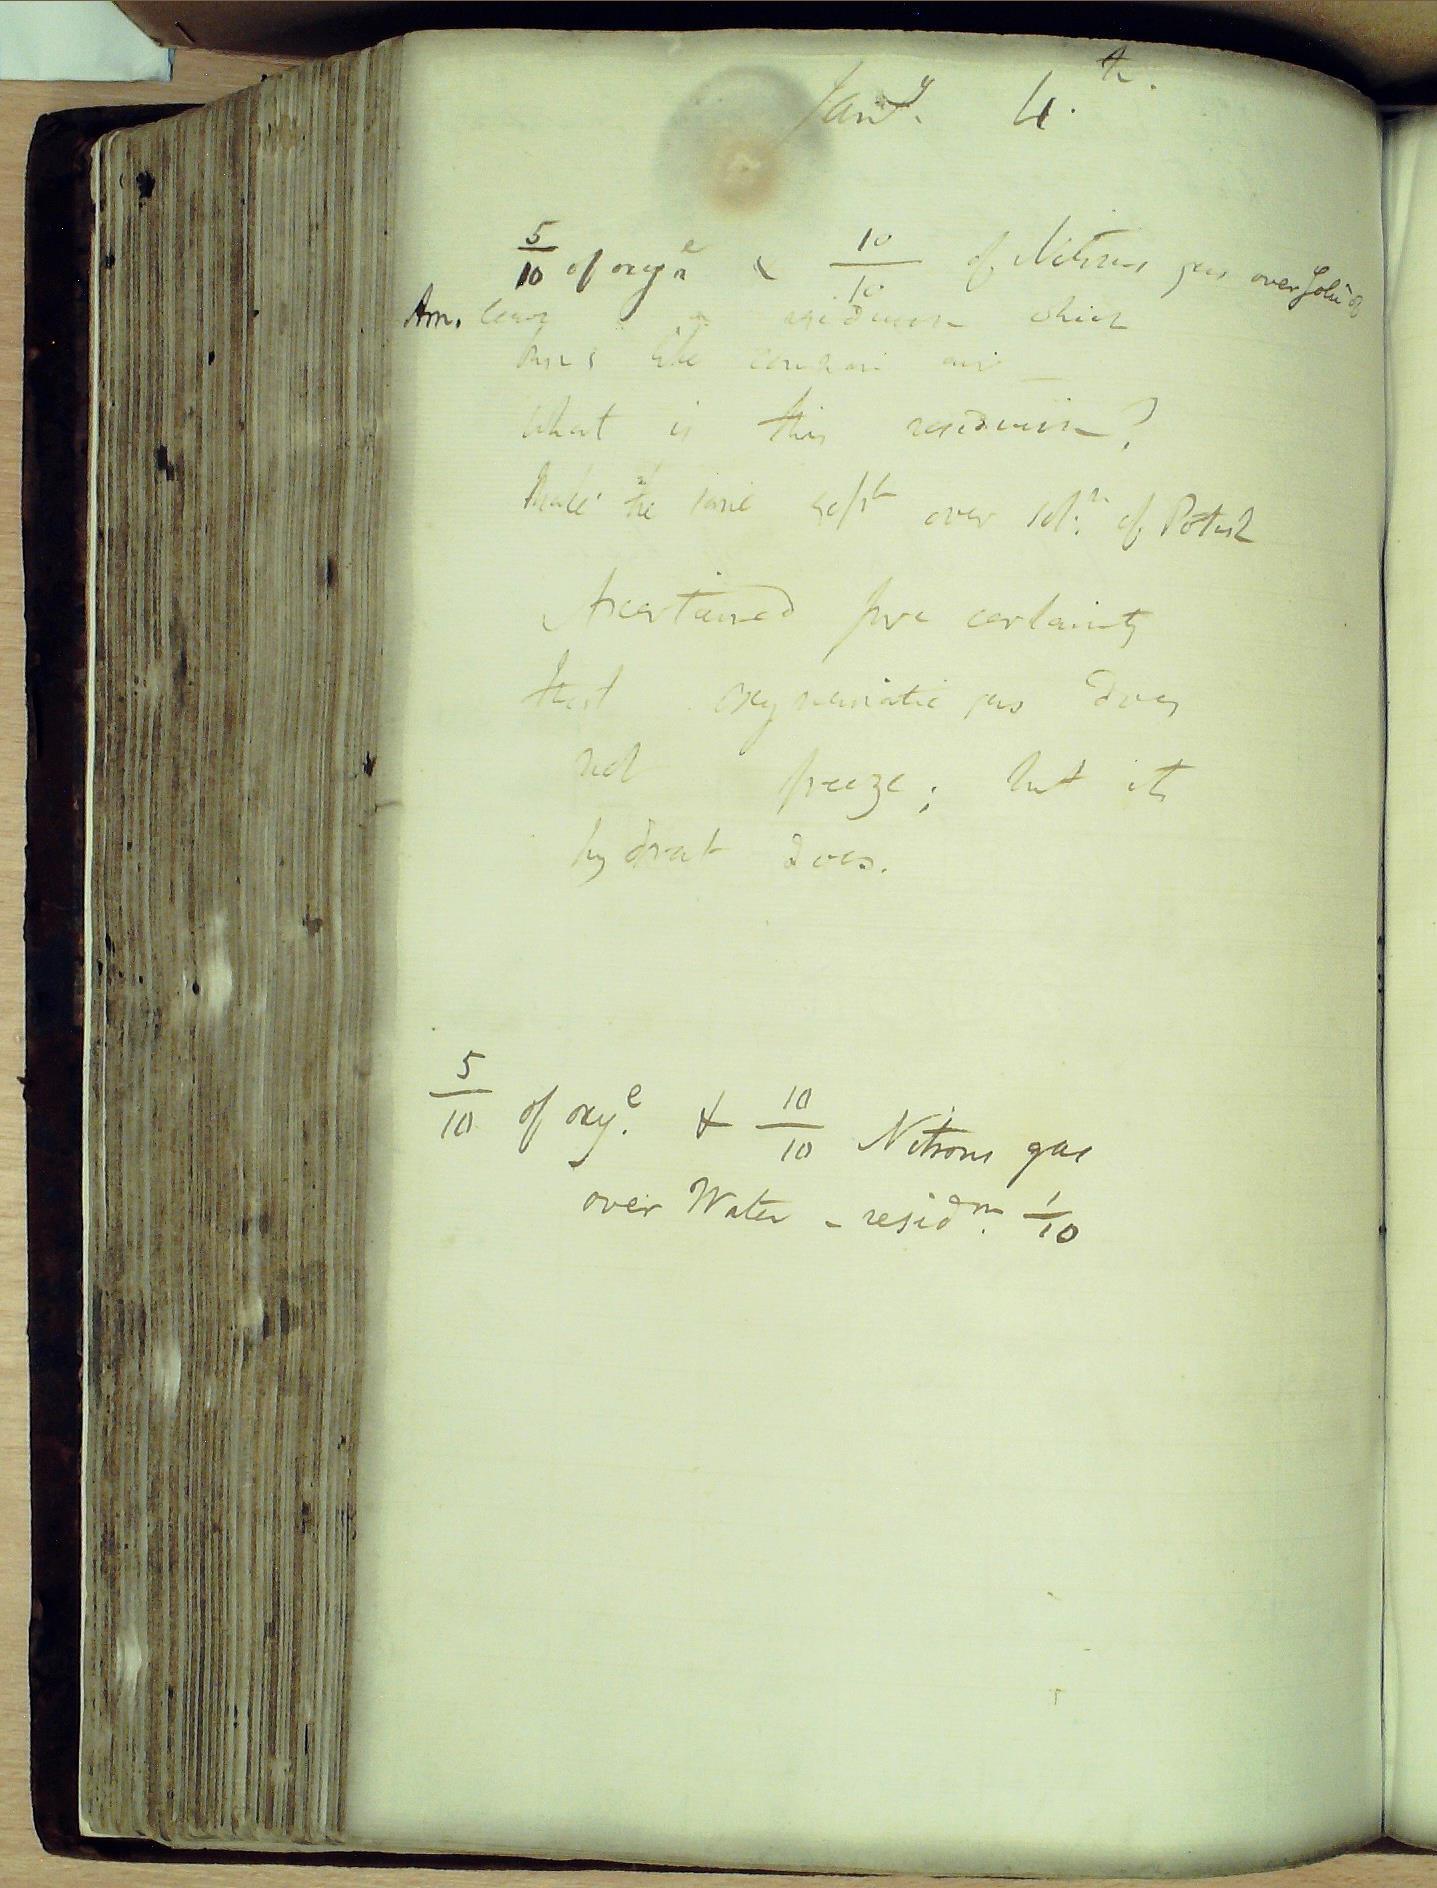 Jany. 4.th.
5/10 of oxyne & 10/10 of Nitrous gas over Soln of
Am. leave a residuum which
burns like common air —
What is this residuum?
Made the same expt over soln. of Potash
Ascertained for certainty
that oxymuriatic gas does
not freeze; but its
hydrat does.
5/10 of oxye. & 10/10 Nitrous gas
over Water - residm. 1/10